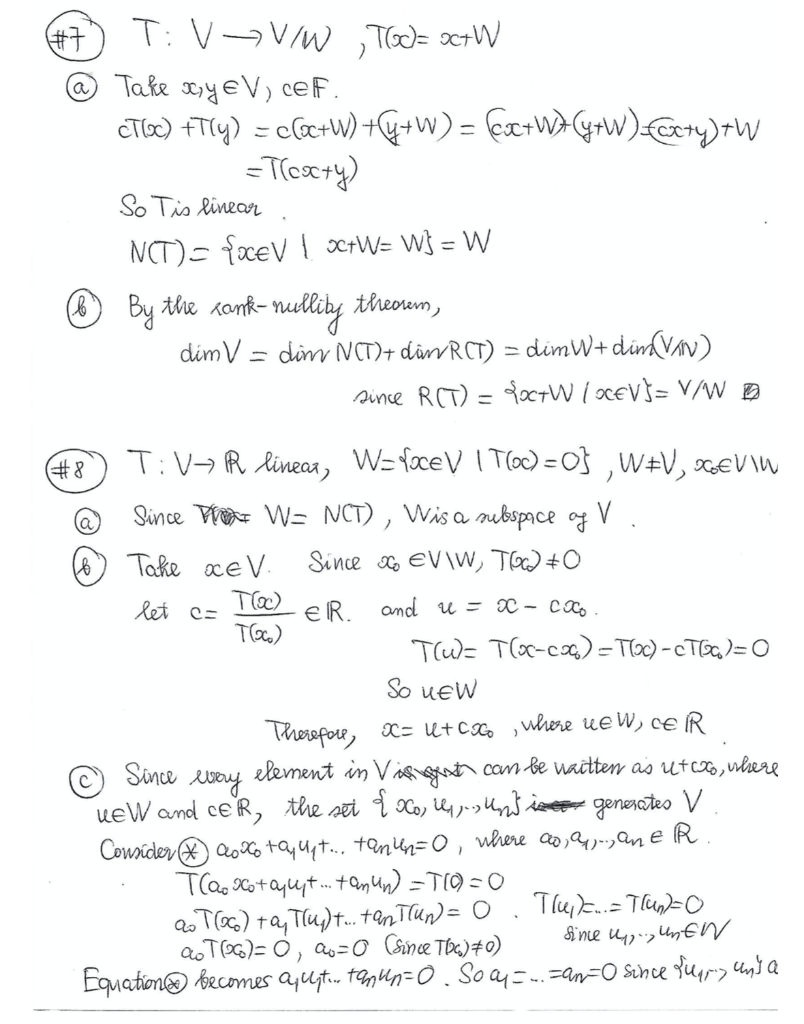 #7 T: V → V/W , T(x) = x+W
(a) Take x,y∈V, c∈F.
cT(x) + T(y) = c(x+W) + (y+W) = (cx+W)+(y+W) = (cx+y)+W
= T(cx+y)
So T is linear.
N(T) = {x∈V | x+W = W} = W
(b) By the rank-nullity theorem,
dim V = dim N(T) + dim R(T) = dim W + dim(V/W)
since R(T) = {x+W / x∈V} = V/W
#8 T: V → R linear, W={x∈V | T(x) = 0} , W≠V, x₀∈V\W
(a) Since W = N(T), W is a subspace of V.
(b) Take x∈V. Since x₀ ∈V\W, T(x₀) ≠ 0
let c = T(x)/T(x₀) ∈ R. and u = x - cx₀.
T(u) = T(x-cx₀) = T(x) - cT(x₀) = 0
So u∈W
Therefore, x = u+cx₀ , where u∈W, c∈R
(c) Since every element in V can be written as u+cx₀, where
u∈W and c∈R, the set {x₀, u₁,.., uₙ} generates V.
Consider (*) a₀x₀ + a₁u₁ + ... + aₙuₙ = 0 , where a₀, a₁,.., aₙ ∈ R.
T(a₀x₀ + a₁u₁ + ... + aₙuₙ) = T(0) = 0
a₀T(x₀) + a₁T(u₁) + ... + aₙT(uₙ) = 0 . T(u₁)=...= T(uₙ)=0
since u₁,.., uₙ∈W
a₀T(x₀) = 0, a₀ = 0 (since T(x₀) ≠ 0)
Equation (*) becomes a₁u₁ + ... + aₙuₙ = 0. So a₁ = ... = aₙ = 0 since {u₁,.., uₙ} a